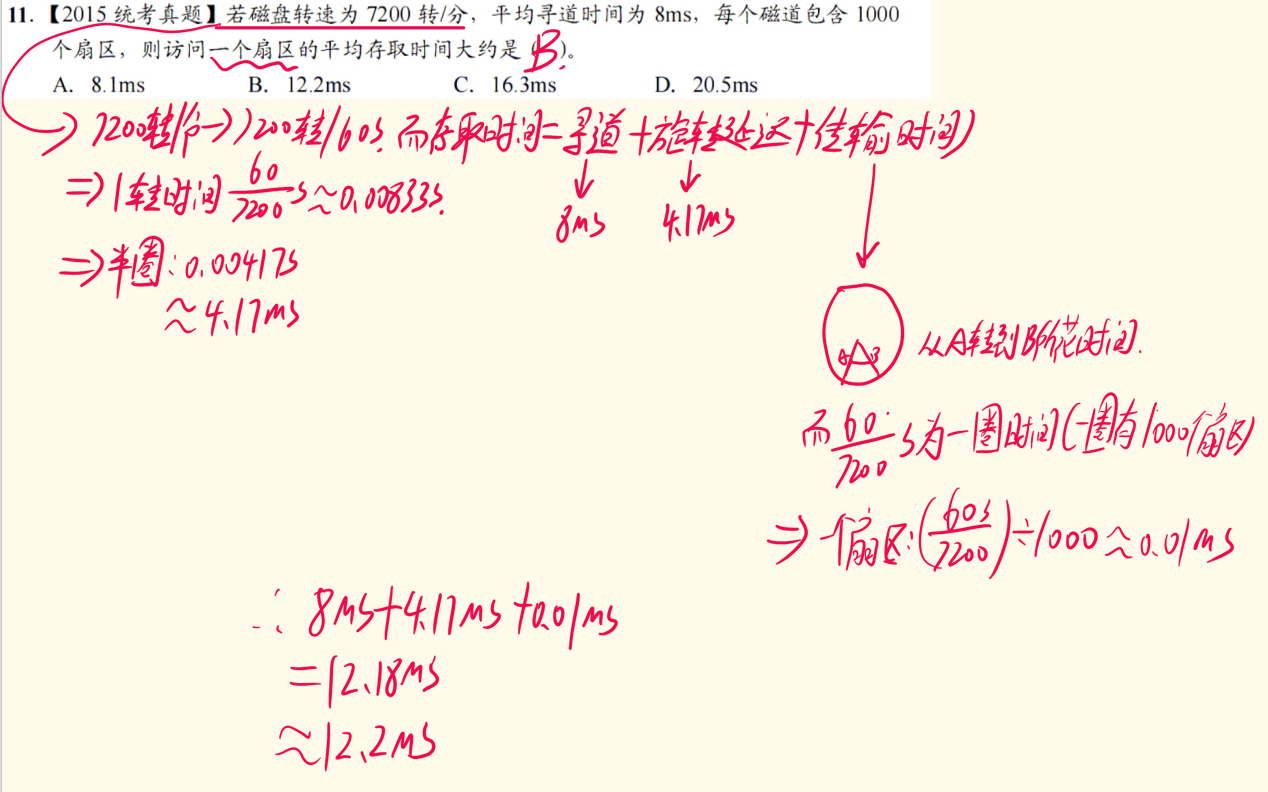 11.【2015 统考真题】若磁盘转速为 7200 转/分，平均寻道时间为 8ms，每个磁道包含 1000
个扇区，则访问一个扇区的平均存取时间大约是（B）。
A. 8.1ms B. 12.2ms C. 16.3ms D. 20.5ms
7200转/分→7200转/60s, 而存取时间=寻道+旋转延迟+传输时间
⇒1转时间 60/7200 s≈0.00833s.
8ms 4.17ms
⇒半圈:0.00417s
≈4.17ms
A B 从A转到B所花时间.
而 60/7200 s为一圈时间(一圈有1000个扇区)
⇒一个扇区:(60s/7200)÷1000≈0.01ms
∴ 8ms+4.17ms+0.01ms
=12.18ms
≈12.2ms